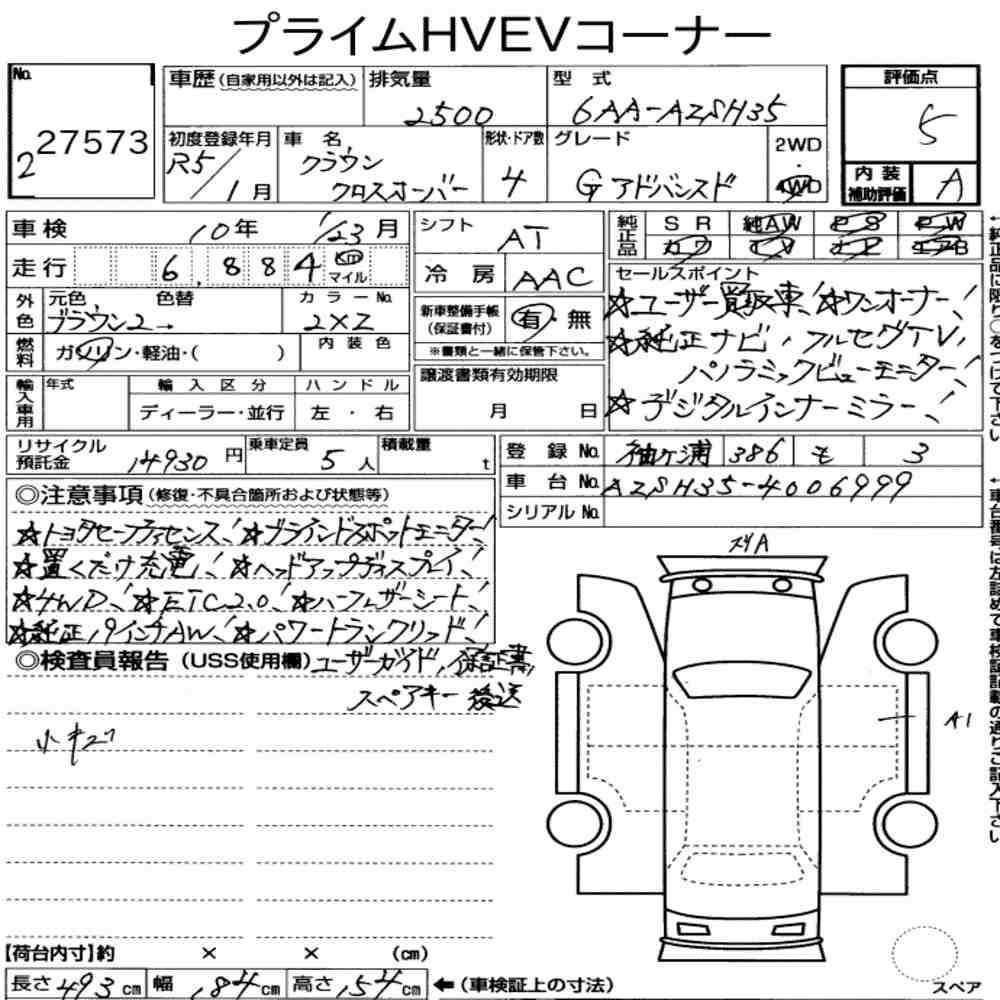 プライムHVEVコーナー
No. 2 27573
車歴(自家用以外は記入) 排気量 2500 型式 6AA-AZSH35 評価点 5
初度登録年月 R5/1月 車名 クラウン クロスオーバー 形状・ドア数 4 グレード G アドバンスド 2WD・4WD
内装補助評価 A
車検 10年 1/23月
シフト AT
純正品 SR 純AW PS PW
カワ TV ナビ エアB
走行 6,884 km マイル
冷房 AAC
外色 元色 色替 ブラウン2→ カラーNo. 2XZ
燃料 ガソリン・軽油・( ) 内装色
新車整備手帳(保証書付) 有・無
※書類と一緒に保管下さい。
輸入車用 年式 輸入区分 ハンドル
ディーラー・並行 左・右
譲渡書類有効期限
月 日
セールスポイント
☆ユーザー買取車! ☆ワンオーナー!
☆純正ナビ、フルセグTV、
パノラミックビューモニター!
☆デジタルインナーミラー!
←純正品に限り○をつけて下さい
リサイクル預託金 14930円 乗車定員 5人 積載量 t
登録No. 袖ヶ浦 386 も 3
車台No. AZSH35-4006999
シリアルNo.
←車台番号は左詰めで車検証記載の通りご記入下さい
◎注意事項(修復・不具合箇所および状態等)
☆トヨタセーフティセンス! ☆ブラインドスポットモニター!
☆置くだけ充電! ☆ヘッドアップディスプレイ!
☆4WD! ☆ETC2.0! ☆ハーフレザーシート!
☆純正19インチAW! ☆パワートランクリッド!
◎検査員報告(USS使用欄) ユーザーガイド、保証書、
スペアキー後送
小キズ
スリA
A1
【荷台内寸】約 × × (cm)
長さ493cm 幅184cm 高さ154cm ←(車検証上の寸法)
スペア